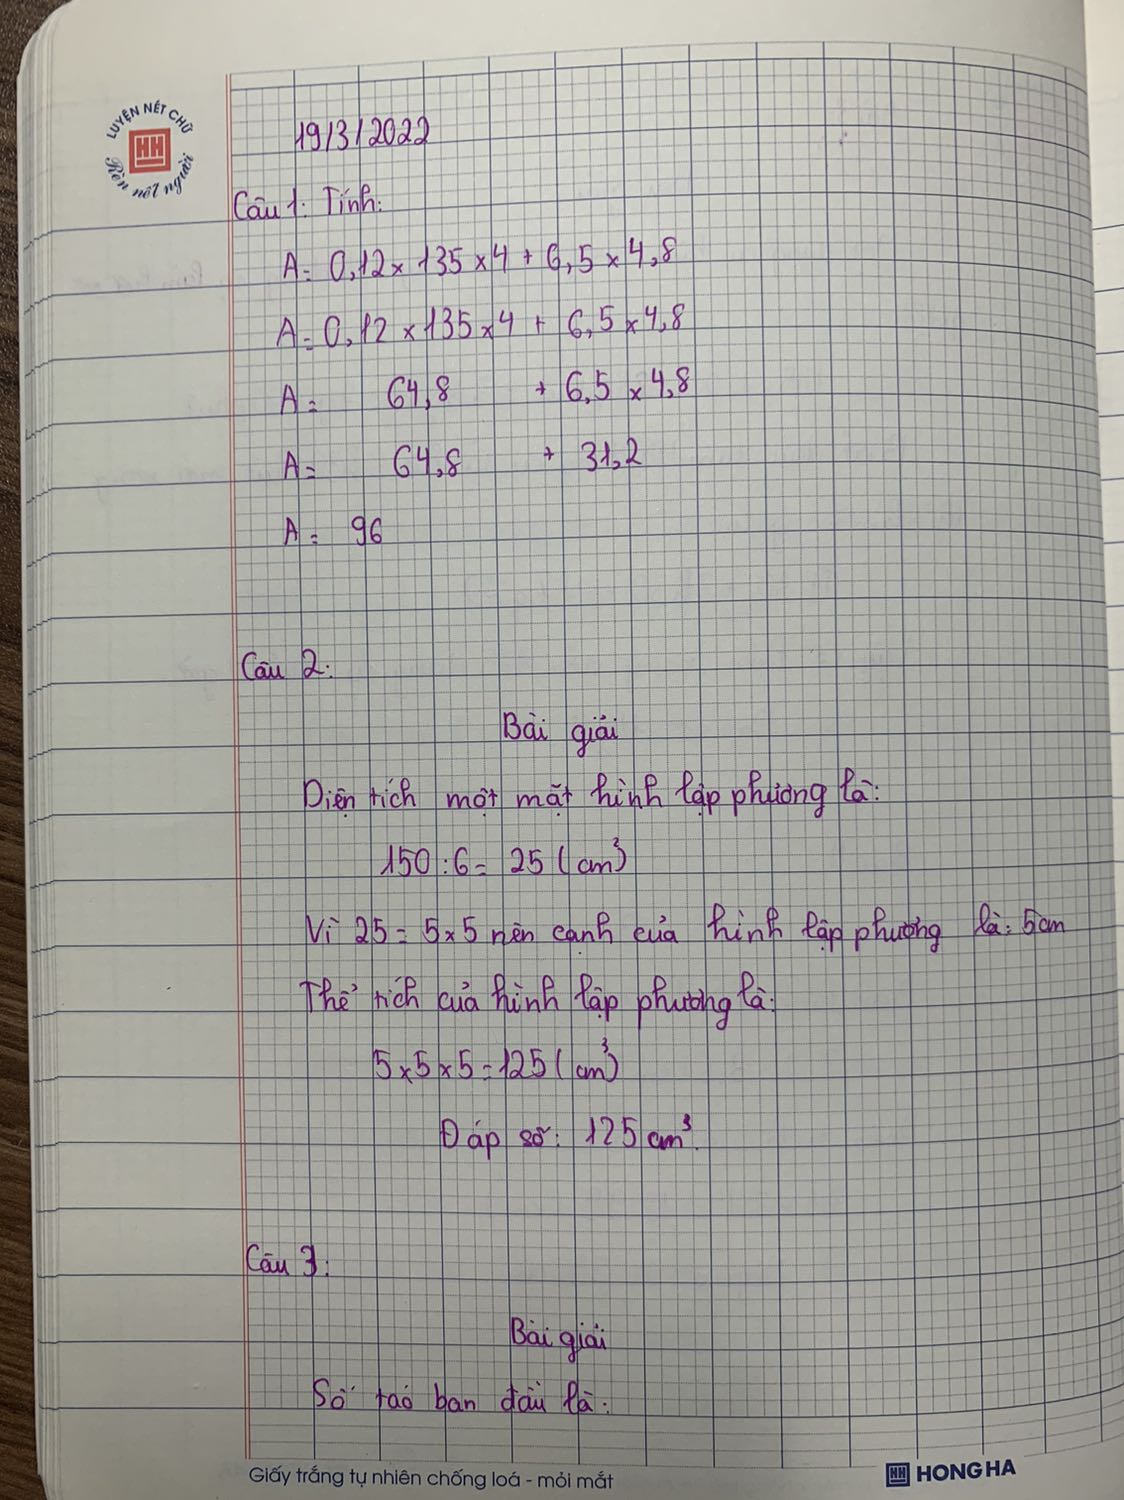 LUYỆN NÉT CHỮ
HH
Rèn nết người
19/3/2022
Câu 1: Tính:
A = 0,12 x 135 x 4 + 6,5 x 4,8
A = 0,12 x 135 x 4 + 6,5 x 4,8
A = 64,8 + 6,5 x 4,8
A = 64,8 + 31,2
A = 96
Câu 2:
Bài giải
Diện tích một mặt hình lập phương là:
150 : 6 = 25 (cm³)
Vì 25 = 5 x 5 nên cạnh của hình lập phương là: 5cm
Thể tích của hình lập phương là:
5 x 5 x 5 = 125 (cm³)
Đáp số: 125 cm³.
Câu 3:
Bài giải
Số táo ban đầu là:
Giấy trắng tự nhiên chống loá - mỏi mắt
HH HONG HA